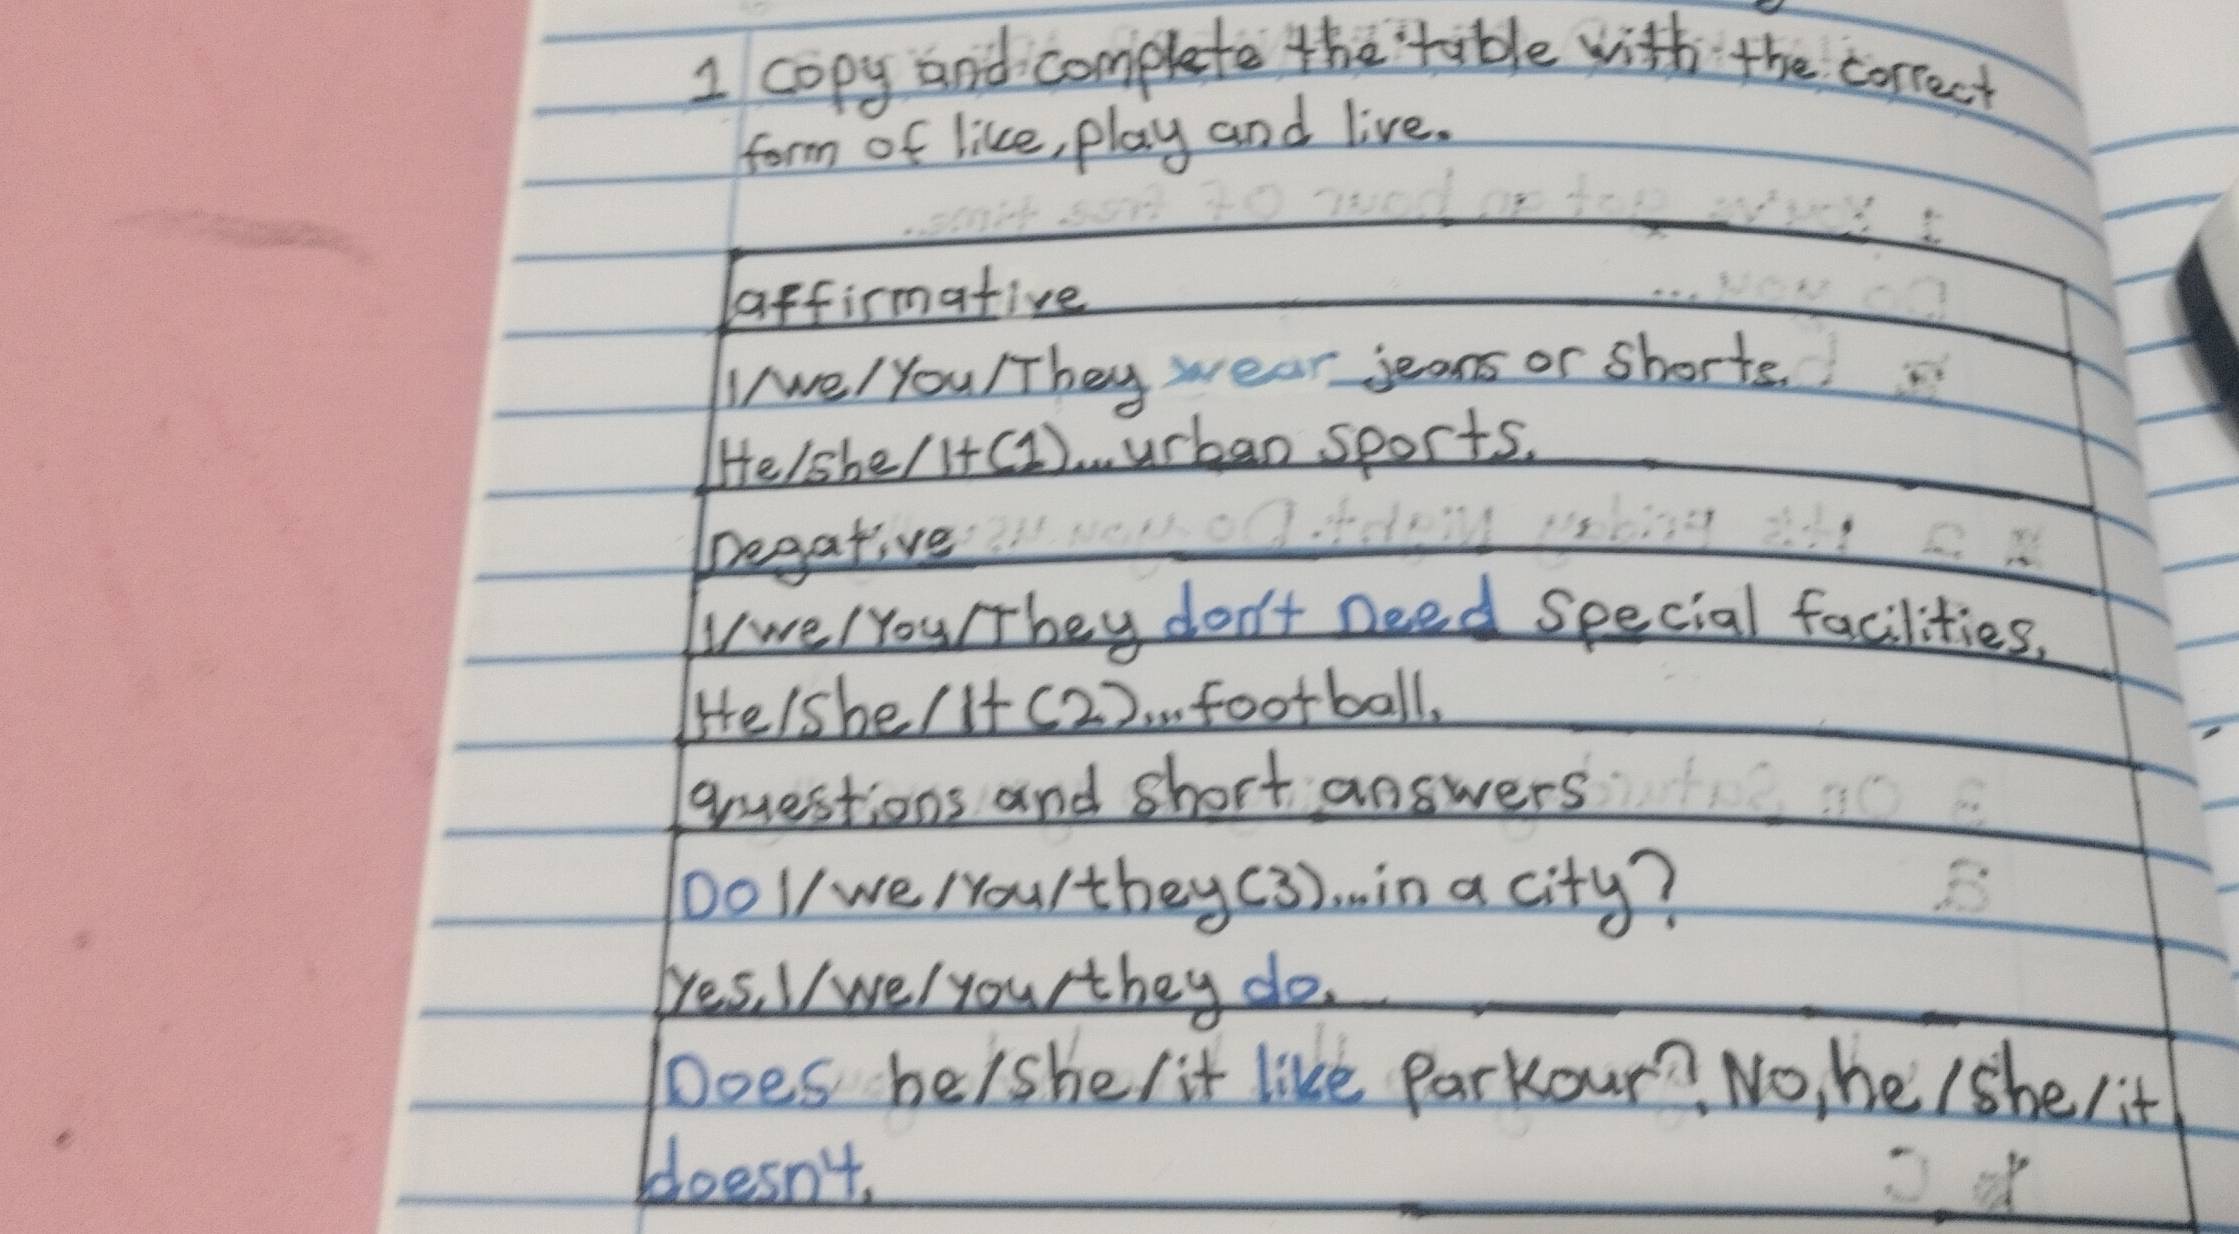 1 Copy and complete the table with the correct
form of like, play and live.
affirmative
I/we/You/They wear jeans or shorts.
He/she/It (1)... urban sports.
negative
I/we/You/They don't need special facilities.
He/She/It (2)... football.
questions and short answers
Do I/we/You/they (3)... in a city?
Yes, I/we/you/they do.
Does he/she/it like Parkour? No, he/she/it
doesn't.